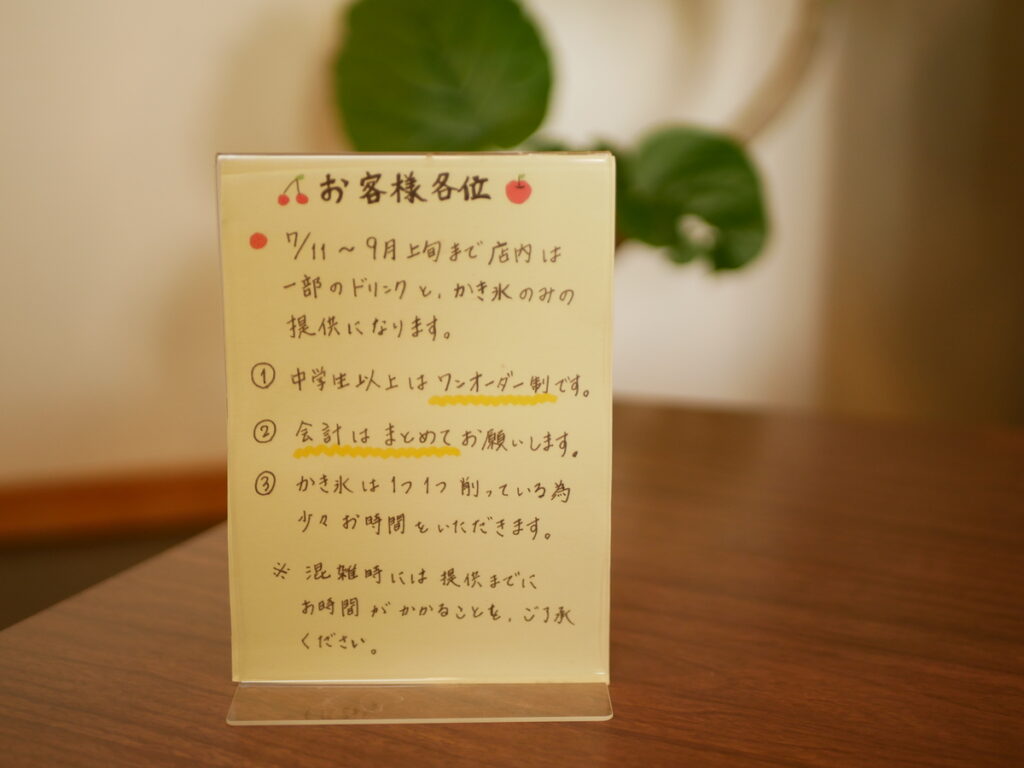 お客様各位
7/11～9月上旬まで店内は
一部のドリンクと、かき氷のみの
提供になります。
① 中学生以上はワンオーダー制です。
② 会計はまとめてお願いします。
③ かき氷は1つ1つ削っている為
少々お時間をいただきます。
※ 混雑時には提供までに
お時間がかかることを、ご了承
ください。